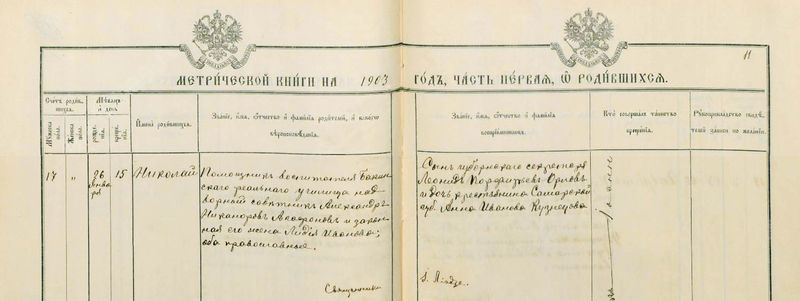 11
МЕТРИЧЕСКОЙ КНИГИ НА 1903 ГОДЪ, ЧАСТЬ ПЕРВАЯ, Ѿ РОДИВШИХСЯ.
Счетъ родив-
шихся.
Мѣсяцъ
и день
Мужеска
пола.
Женска
пола.
рожде-
нія.
креще-
нія.
Имена родившихся.
Званіе, имя, отчество и фамилія родителей, и какого
вѣроисповѣданія.
Званіе, имя, отчество и фамилія
воспріемниковъ.
Кто совершалъ таинство
крещенія.
Рукоприкладство свидѣ-
телей записи по желанію.
17 „ 26 15 Николай
Янва
ря
Помощникъ воспитателя Бакин-
скаго реальнаго училища над
ворный совѣтникъ Александръ
Никаноровъ Агафоновъ и закон-
ная его жена Лидія Иванова;
оба православные.
Священники
Сынъ губернскаго секретаря
Леонидъ Порфирьевъ Орловъ
и дочь крестьянина Самарской
губ. Анна Иванова Кузнецова